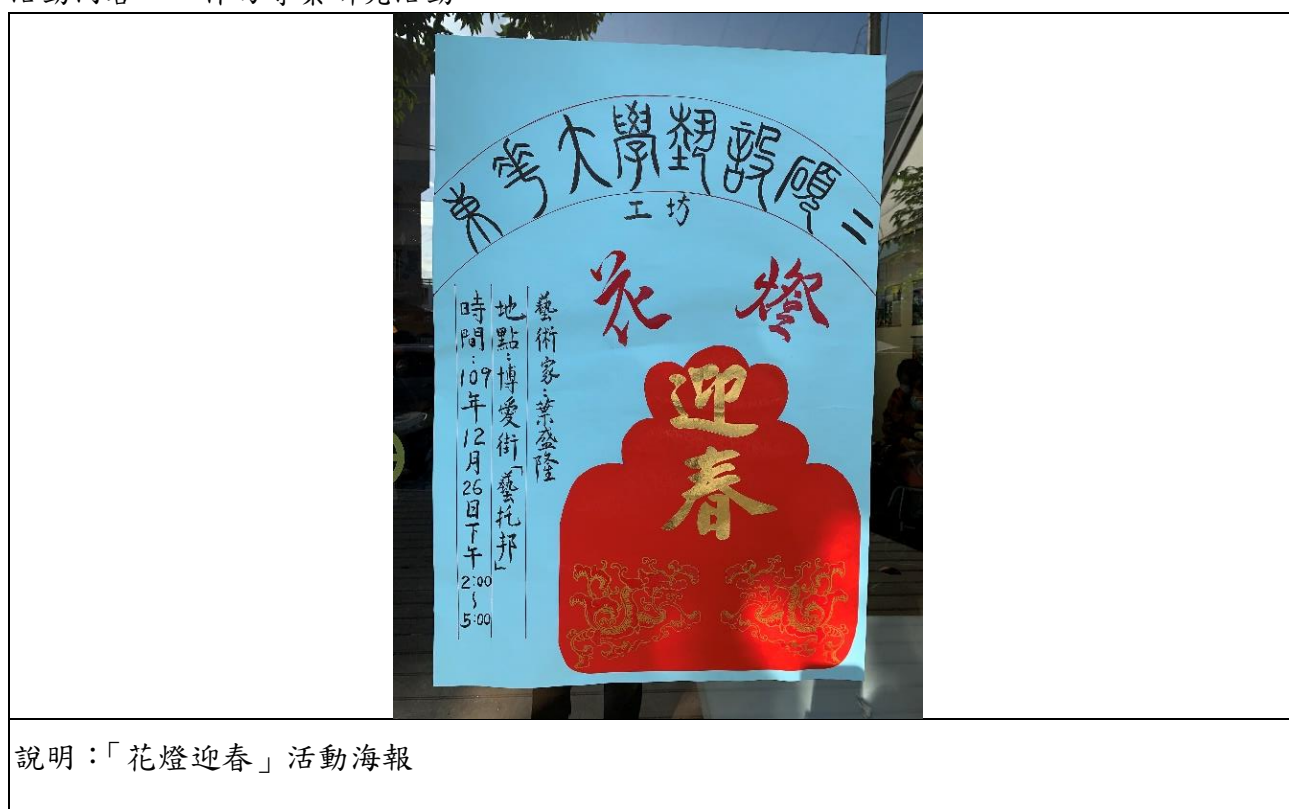 東華大學藝設碩二
工坊
花燈
迎春
藝術家:葉盛隆
地點:博愛街「藝托邦」
時間:109年12月26日下午2:00~5:00
說明:「花燈迎春」活動海報